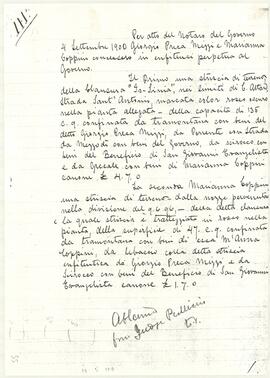 111.
Per atto del Notaro del Governo
4 Settembre 1900 Giorgio Preca Mizzi e Marianna
Coppini concessero in enfiteusi perpetua al
Governo.
Il Primo una striscia di terreno
della chiamata "Ta-Linia", nei limiti di C. Attard
Strada Sant' Antonio, marcata color roseo scuro
nella pianta allegata - della capacità di 135
c. q. confinata da tramontana con beni del
detto Giorgio Preca Mizzi, da Ponente con Strada
da Mezzodì con beni del Governo, da scirocco con
beni del Beneficio di San Giovanni Evangelista
e da Grecale con beni di Marianna Coppini
canone £ 4. 7. 0
La seconda Marianna Coppini
una striscia di terreno dalla stessa pervenuta
nella divisione del
la quale striscia è tratteggiata in rosso nella
pianta, della superficie di 47 c. q. confinata
da tramontana con beni di essa Marianna
Coppini, da libeccio colla detta striscia
enfiteutica di Giorgio Preca Mizzi, e da
Scirocco con beni del Beneficio di San Giovanni
Evangelista canone £ 1. 7. 0